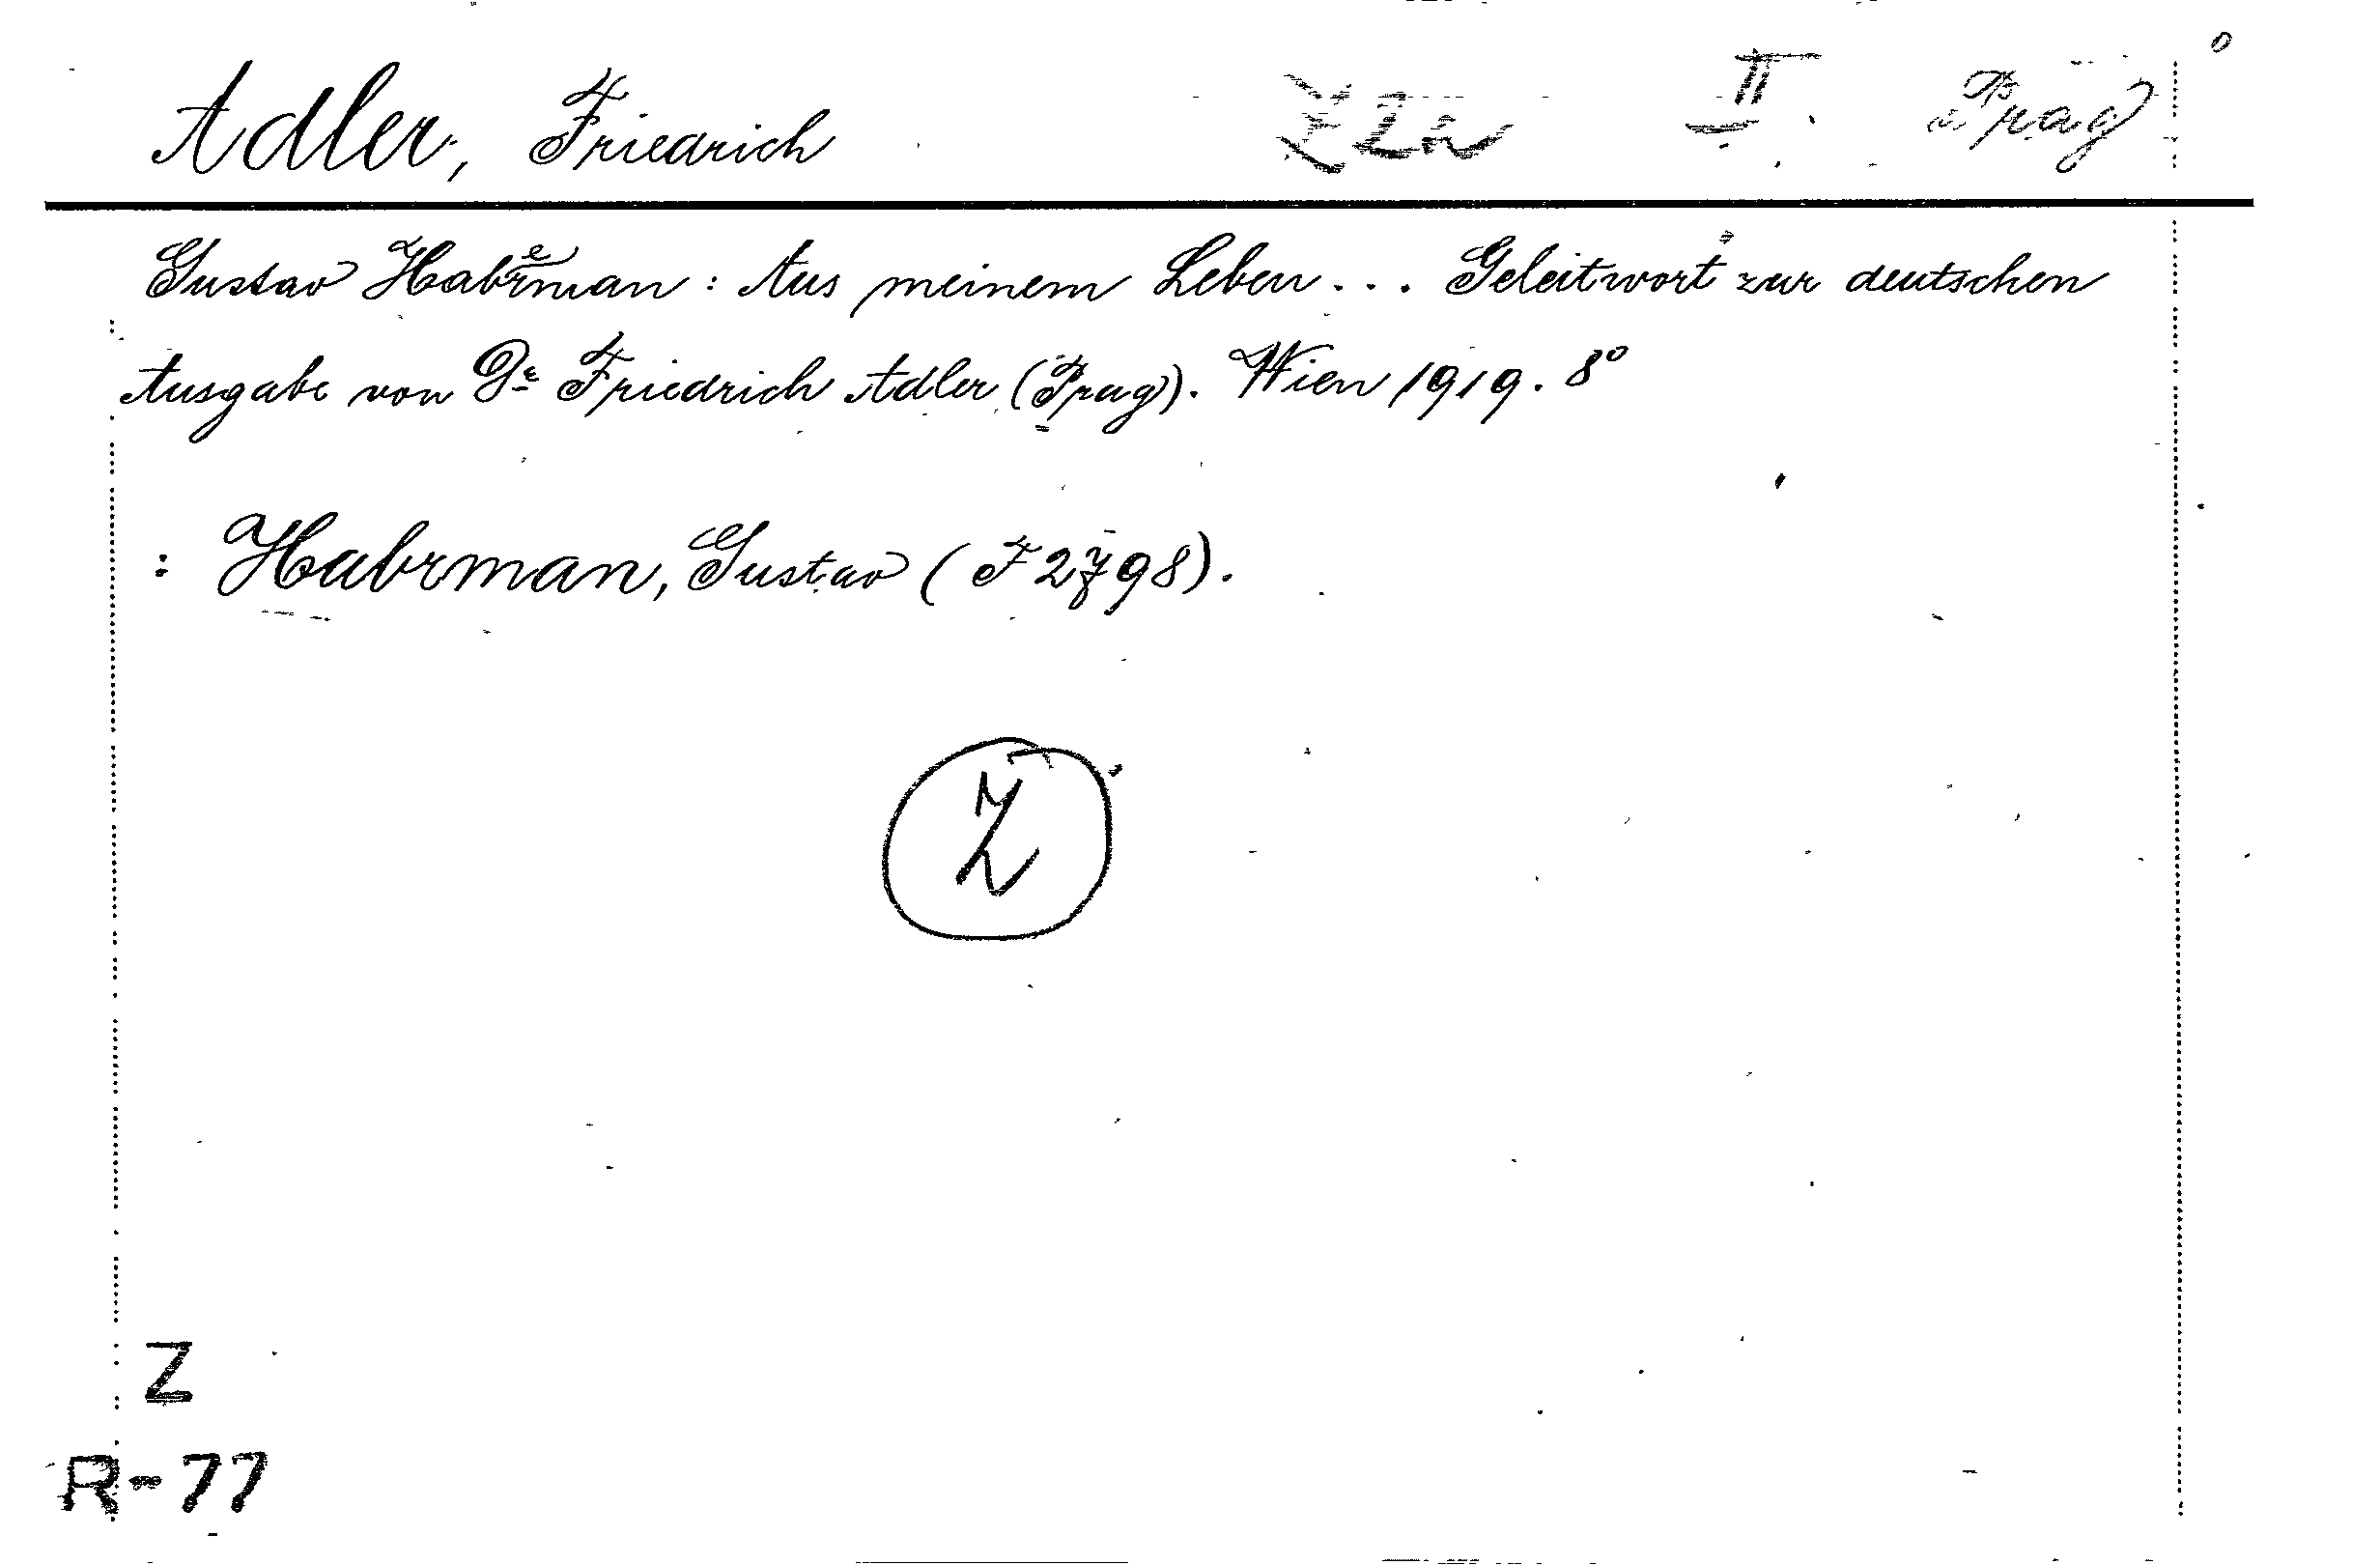 Adler, Friedrich II. Prag
Gustav Habrman: Aus meinem Leben... Geleitwort zur deutschen
Ausgabe von Dr Friedrich Adler (Prag). Wien 1919. 8°
: Habrman, Gustav (F 2798).
Z
Z
R-77